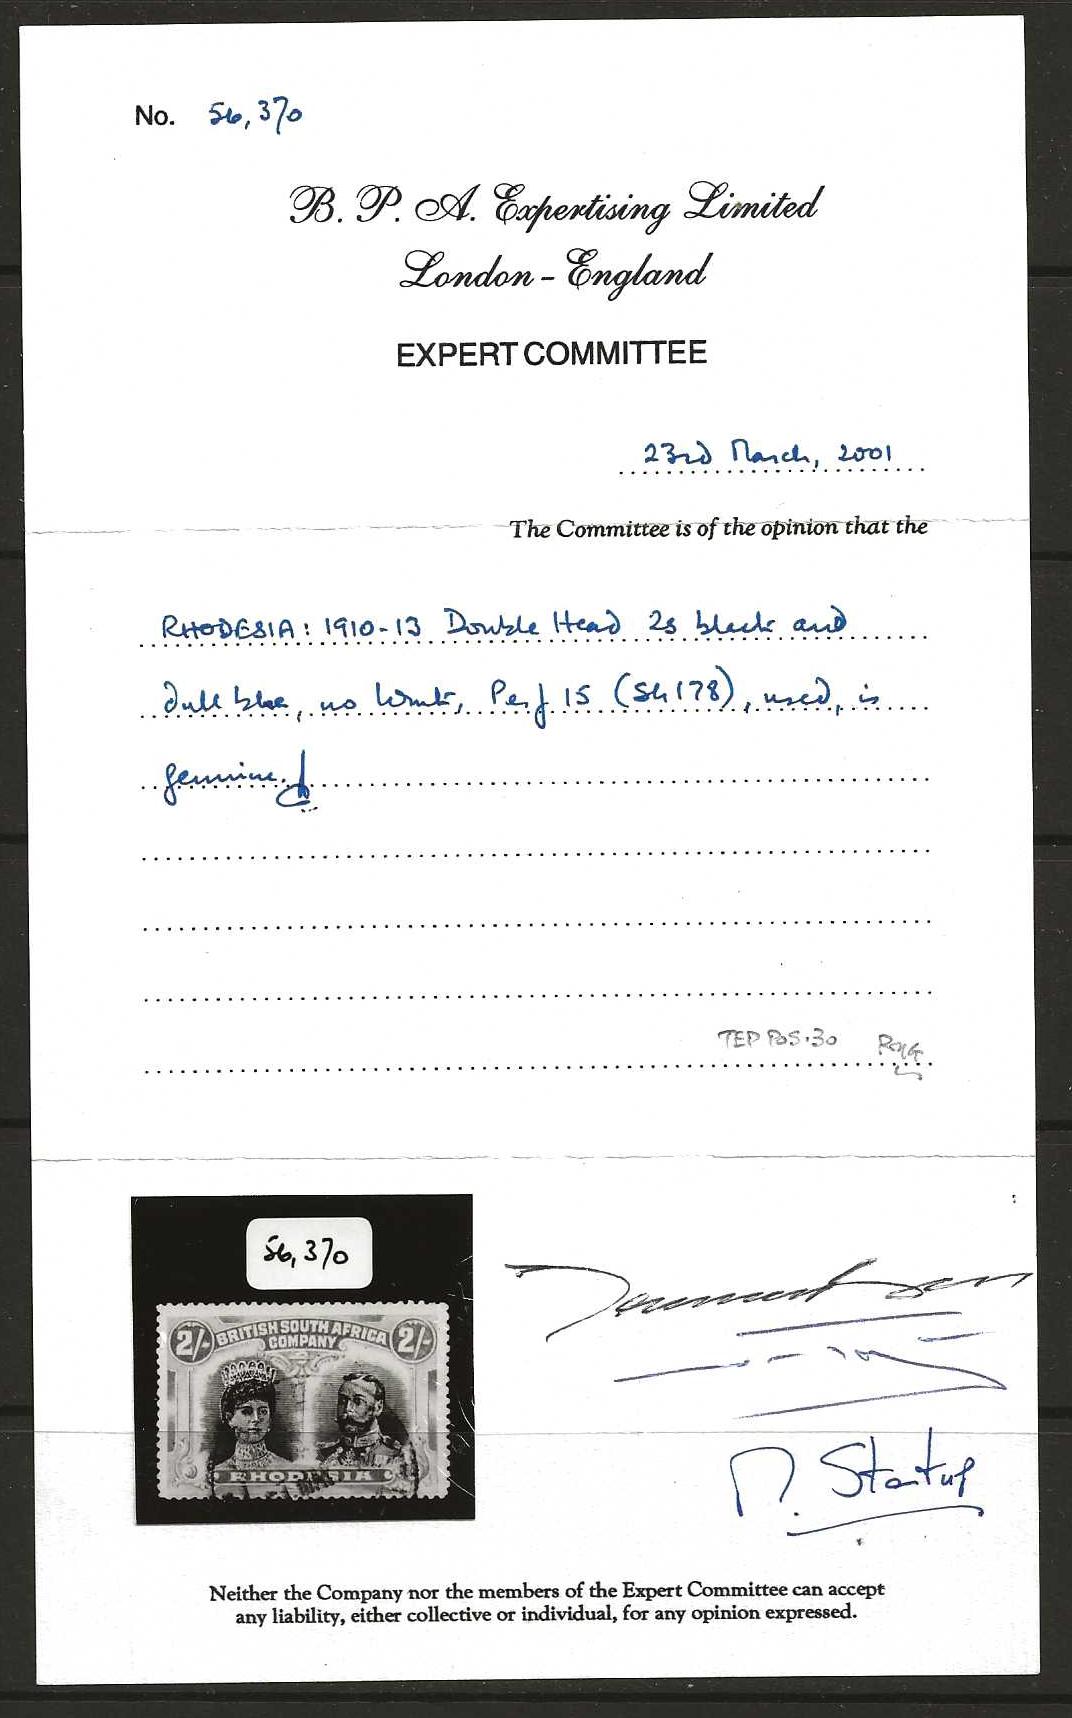 No. 56,370
B. P. A. Expertising Limited
London - England
EXPERT COMMITTEE
23rd March, 2001
The Committee is of the opinion that the
RHODESIA: 1910-13 Double Head 2s black and
dull blue, no wmk, Perf 15 (SG 178), used, is
genuine.
TEP POS. 30
56,370
2/- BRITISH SOUTH AFRICA 2/-
COMPANY
RHODESIA
P. Startup
Neither the Company nor the members of the Expert Committee can accept
any liability, either collective or individual, for any opinion expressed.